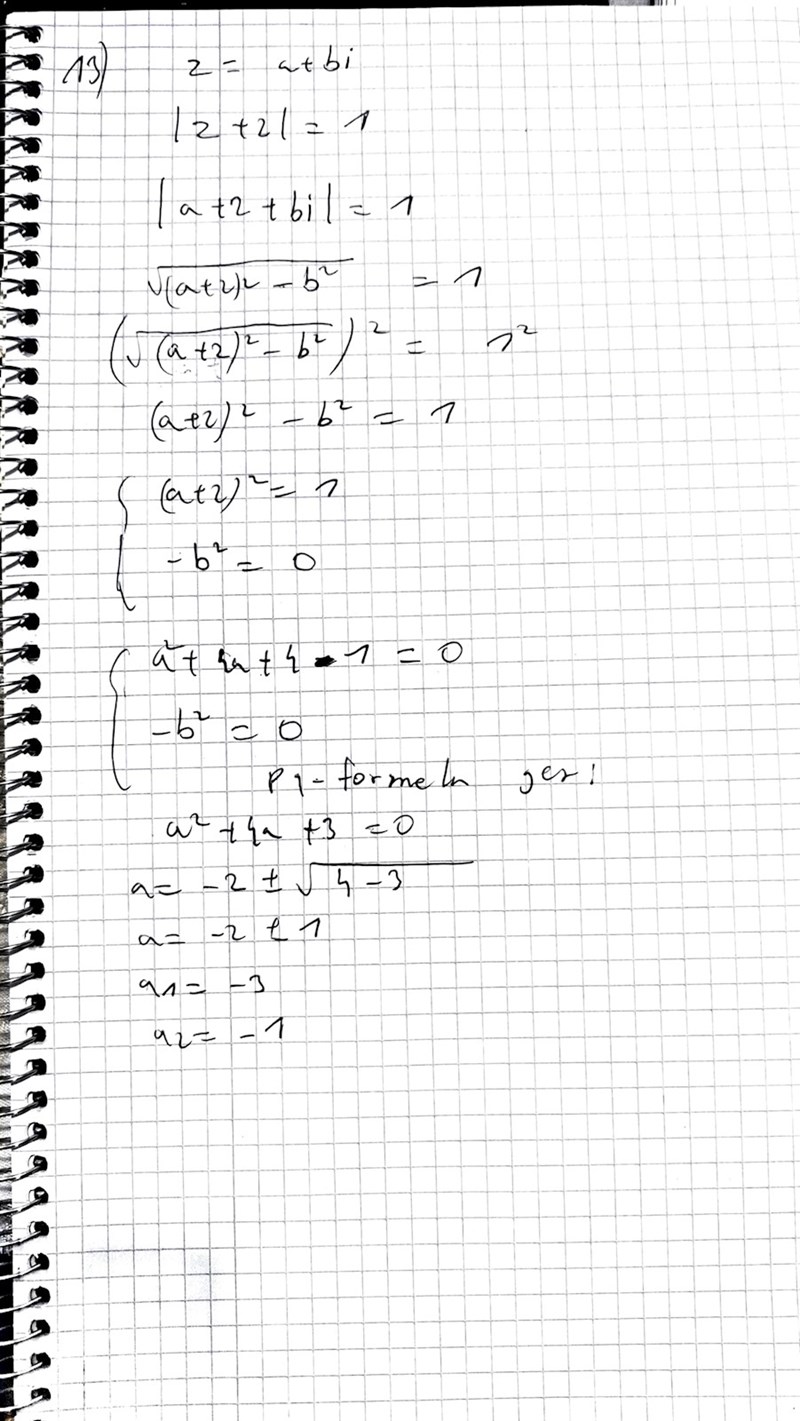 13) z = a+bi
|z+2| = 1
|a+2+bi| = 1
√((a+2)² - b²) = 1
(√((a+2)² - b²))² = 1²
(a+2)² - b² = 1
(a+2)² = 1
-b² = 0
a² + 4a + 4 - 1 = 0
-b² = 0
pq-formeln ger:
a² + 4a + 3 = 0
a = -2 ± √(4-3)
a = -2 ± 1
a1 = -3
a2 = -1